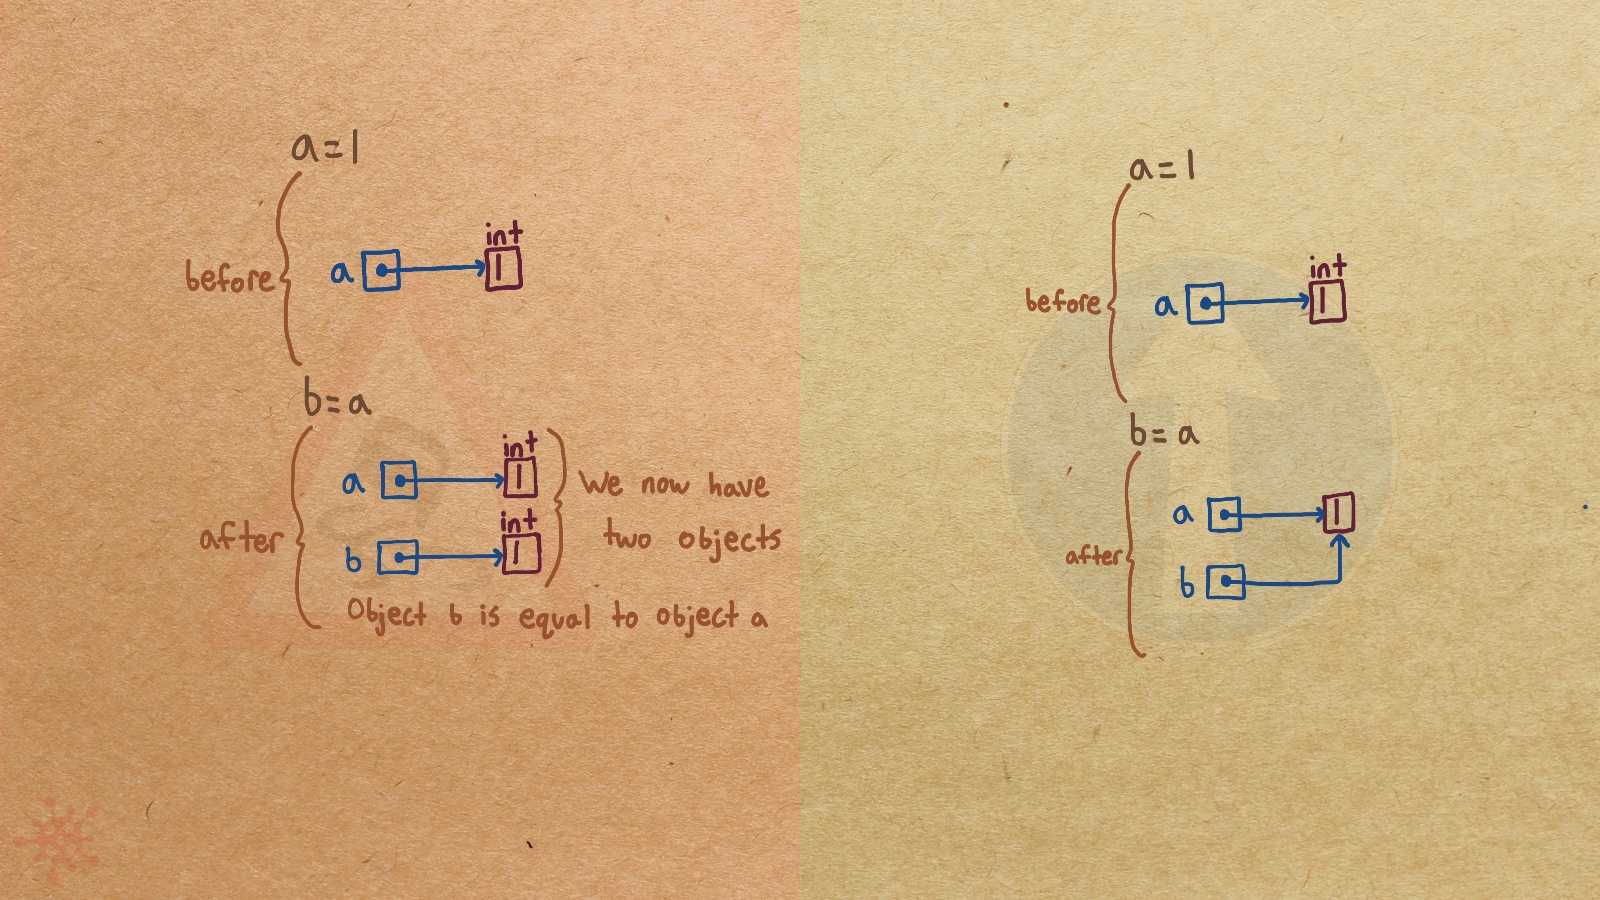 a=1
int
a
1
before
b=a
int
a
1
We now have
two objects
int
b
1
after
Object b is equal to object a
a=1
int
a
1
before
b=a
a
1
after
b